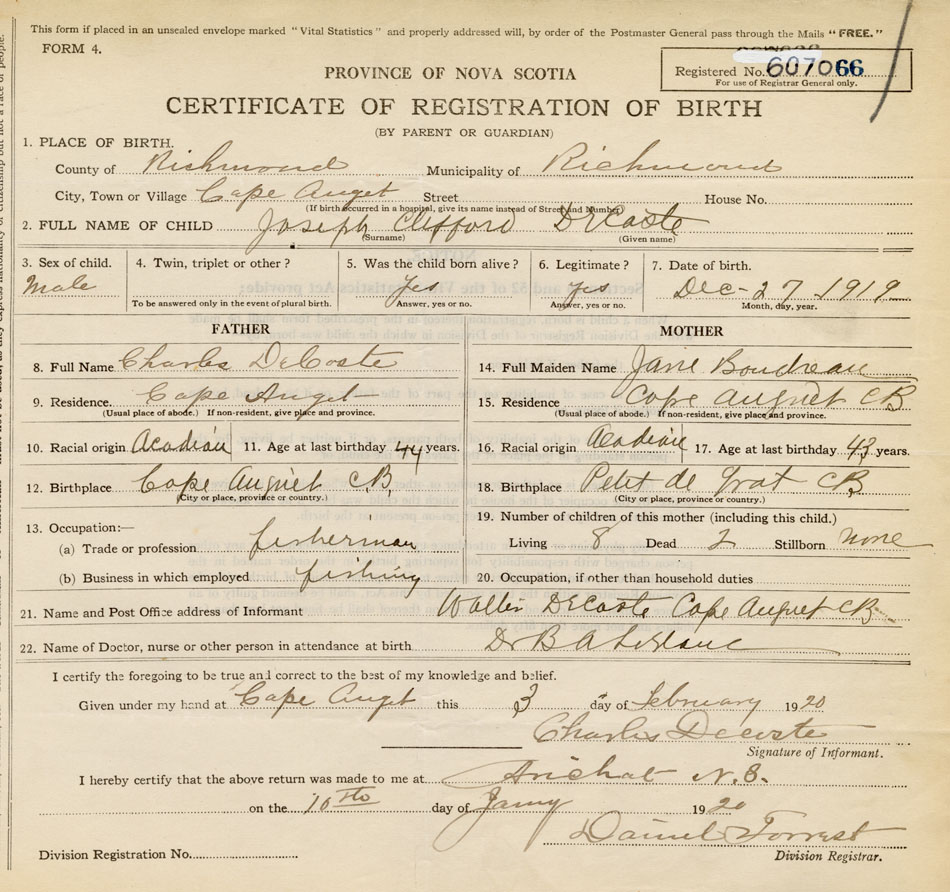 This form if placed in an unsealed envelope marked "Vital Statistics" and properly addressed will, by order of the Postmaster General pass through the Mails "FREE."
FORM 4.
Registered No. 607066
For use of Registrar General only.
PROVINCE OF NOVA SCOTIA
CERTIFICATE OF REGISTRATION OF BIRTH
(BY PARENT OR GUARDIAN)
1. PLACE OF BIRTH.
County of Richmond Municipality of Richmond
City, Town or Village Cape Auget Street House No.
(If birth occurred in a hospital, give its name instead of Street and Number)
2. FULL NAME OF CHILD Joseph Clifford DeCoste
(Surname) (Given name)
3. Sex of child. 4. Twin, triplet or other? 5. Was the child born alive? 6. Legitimate? 7. Date of birth.
Male Yes yes Dec-27 1919
To be answered only in the event of plural birth. Answer, yes or no. Answer, yes or no. Month, day, year.
FATHER MOTHER
8. Full Name Charles DeCoste 14. Full Maiden Name Jane Boudreau
9. Residence. Cape Auget 15. Residence Cape Auguet CB
(Usual place of abode.) If non-resident, give place and province. (Usual place of abode.) If non-resident, give place and province.
10. Racial origin Acadian 11. Age at last birthday 44 years. 16. Racial origin Acadian 17. Age at last birthday 43 years.
12. Birthplace Cape Auguet C.B. 18. Birthplace Petit de Grat CB
(City or place, province or country.) (City or place, province or country.)
13. Occupation:— 19. Number of children of this mother (including this child.)
(a) Trade or profession fisherman Living 8 Dead 2 Stillborn none
(b) Business in which employed fishing 20. Occupation, if other than household duties
21. Name and Post Office address of Informant Walter DeCoste Cape Auguet CB
22. Name of Doctor, nurse or other person in attendance at birth Dr B A LeBlanc
I certify the foregoing to be true and correct to the best of my knowledge and belief.
Given under my hand at Cape Auget this 3 day of February 1920
Charles Decoste
Signature of Informant.
I hereby certify that the above return was made to me at Arichat N.S.
on the 10th day of Jany 1920
Daniel Forrest
Division Registrar.
Division Registration No.